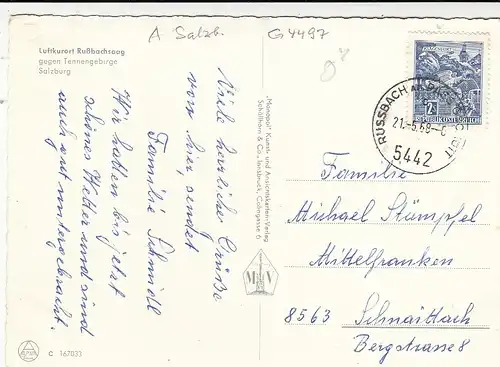 Luftkurort Rußbachsaag
gegen Tennengebirge
Salzburg
A Salzb.
G 4497
Viele herzliche Grüße
von hier sendet
Familie Schmidl
Wir hatten bis jetzt
schönes Wetter und sind
auch gut untergebracht.
„Monopol" Kunst- und Ansichtskarten-Verlag
Schöllhorn & Co., Innsbruck, Colingasse 6
M V
RUSSBACH AM PASS
21.-5.68-
5442
REPUBLIK ÖSTERREICH
Familie
Michael Stümpfel
Mittelfranken
8563 Schnaittach
Bergstrasse 8
C 167033